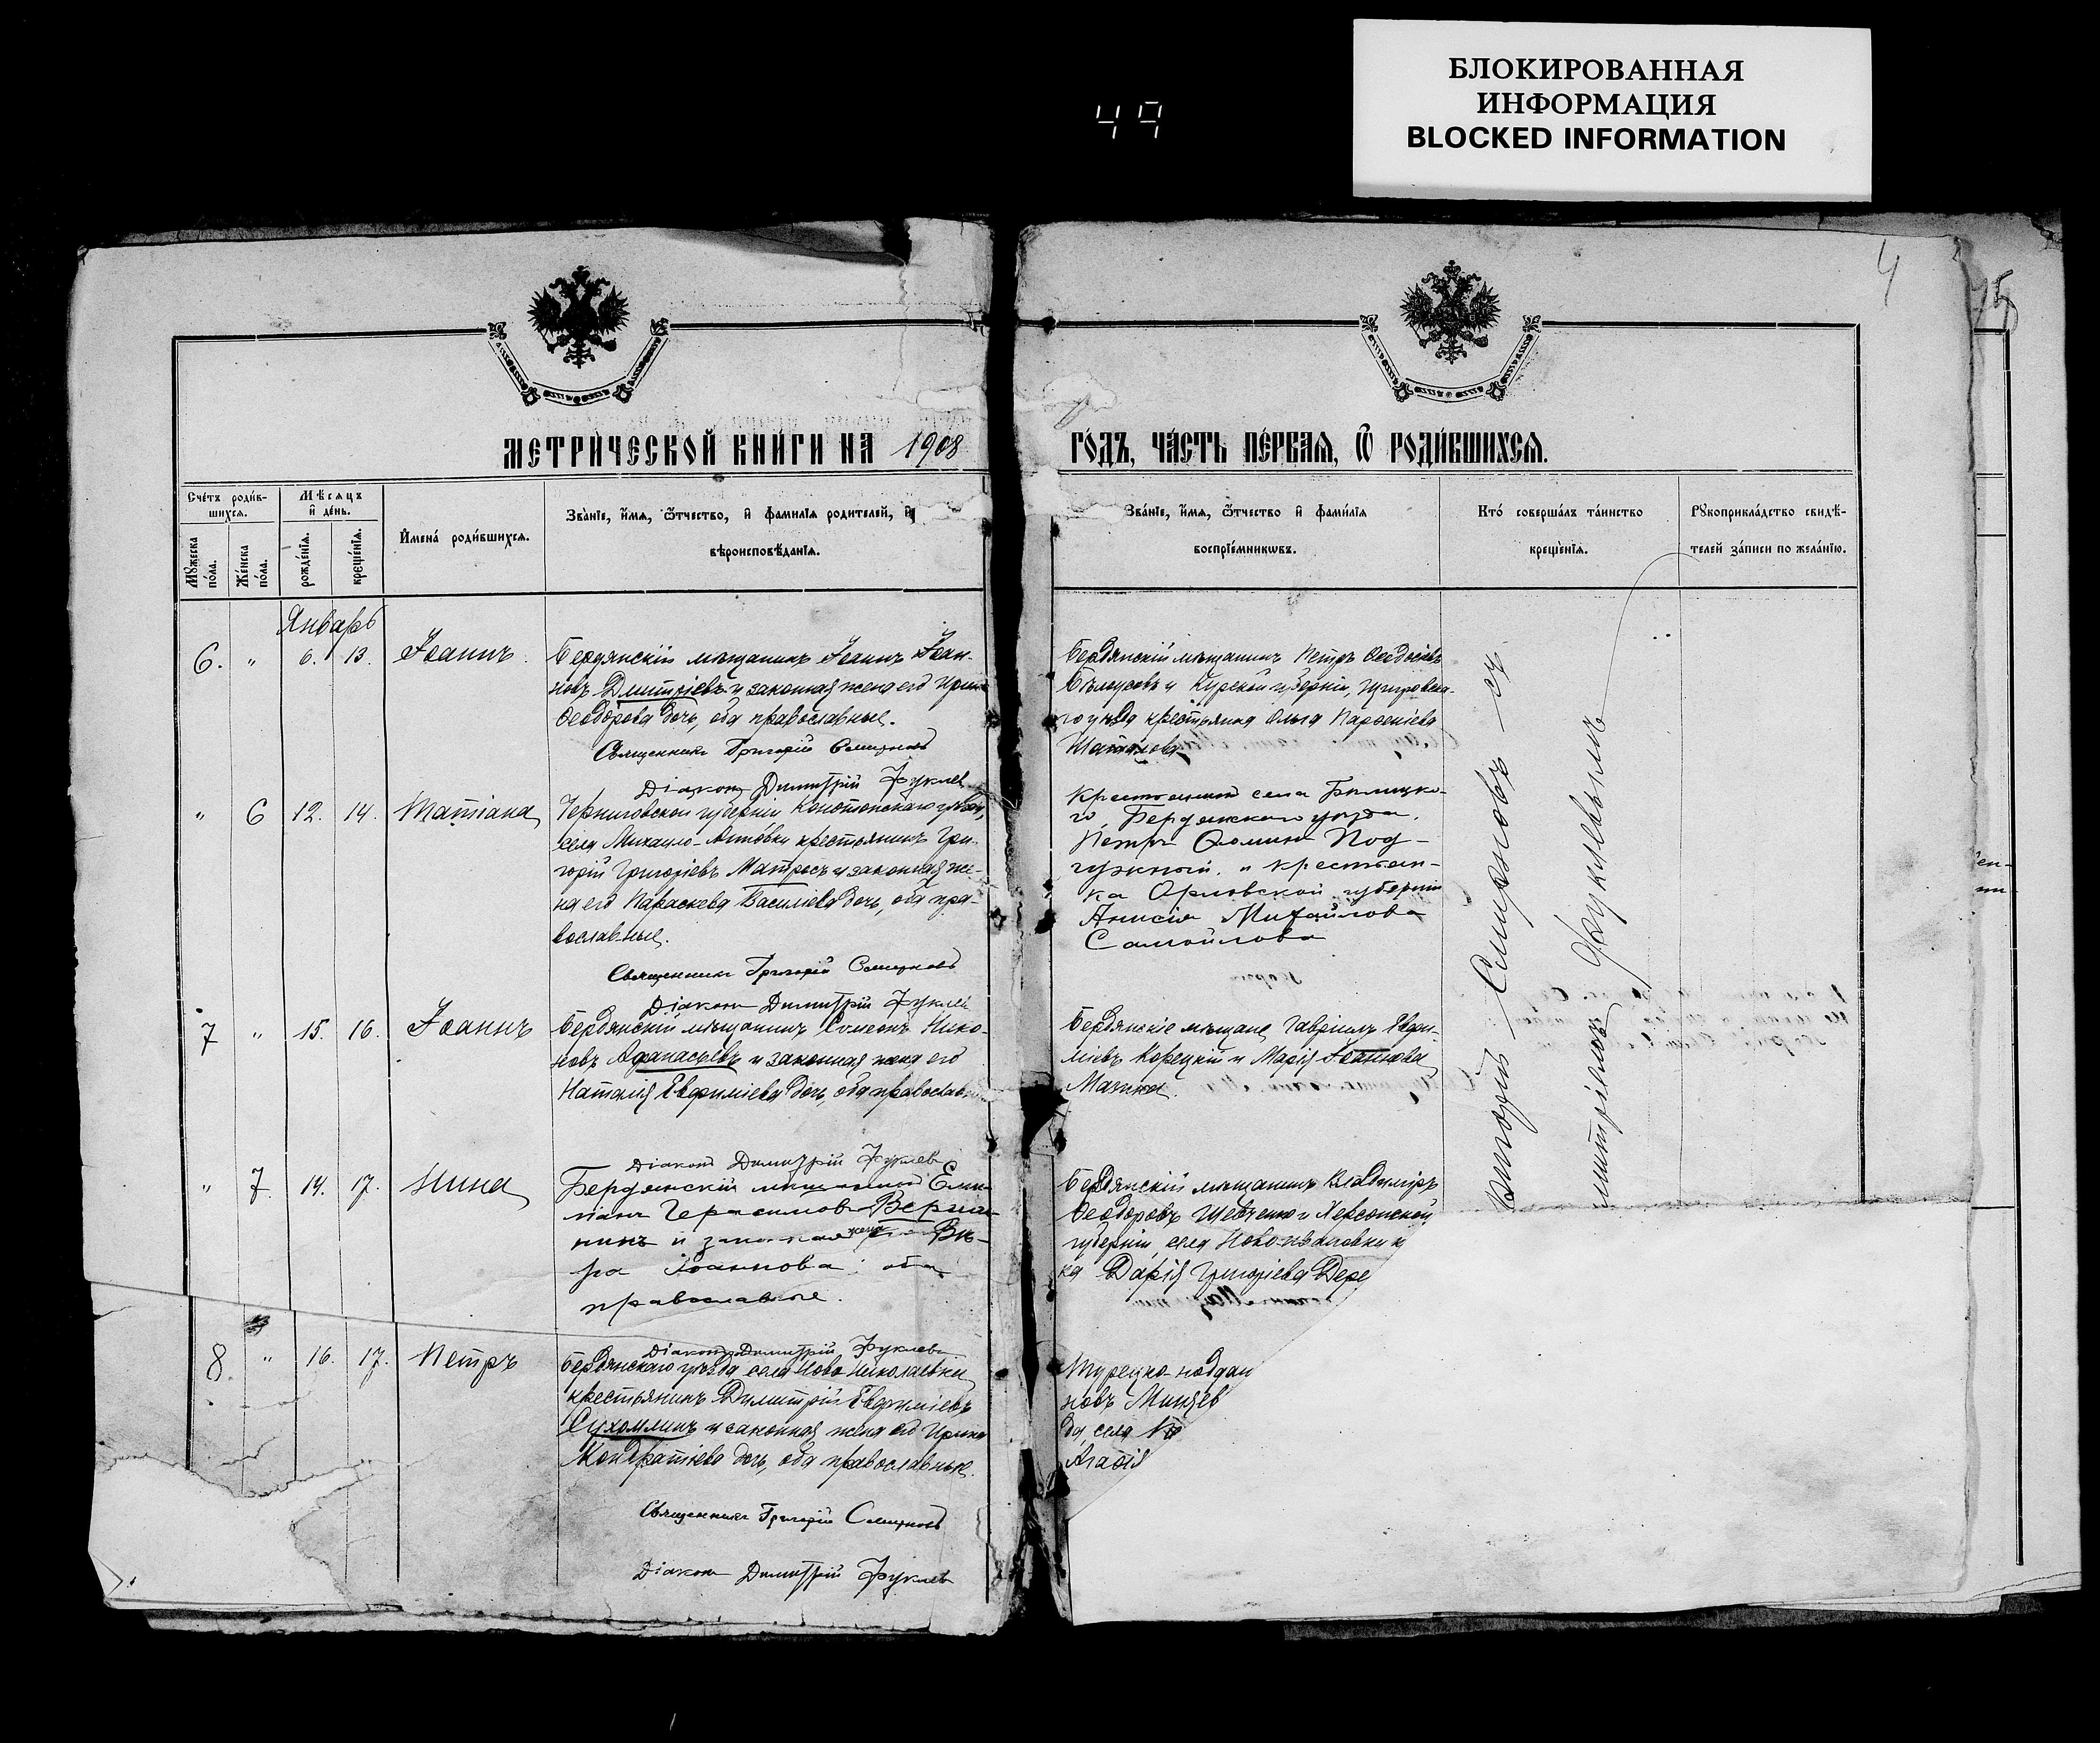 БЛОКИРОВАННАЯ
ИНФОРМАЦИЯ
BLOCKED INFORMATION
49
4
МЕТРИ́ЧЕСКОЙ КНИ́ГИ НА 1908
ГО́ДЪ, ЧА́СТЬ ПЕ́РВАѦ, Ѽ РОДИ́ВШИХСѦ.
Сче́тъ роди́в-
шихсѧ.
Мѹ́жеска по́ла.
Же́нска по́ла.
Мѣ́сѧцъ
и҆ де́нь.
рожде́нїѧ.
креще́нїѧ.
И҆мена̀ роди́вшихсѧ.
Зва́нїе, и҆́мѧ, ѻ҆́тчество, и҆ фами́лїѧ роди́телей, и҆
вѣроисповѣ́данїѧ.
Зва́нїе, и҆́мѧ, ѻ҆́тчество и҆ фами́лїѧ
воспрїе́мникѡвъ.
Кто̀ соверша́лъ та́инство
креще́нїѧ.
Рѹкоприкла́дство свидѣ́-
телей за́писи по жела́нїю.
Январь
6. " 6. 13. Іоаннъ.
Бердянскій мѣщанинъ Іоаннъ Іоан-
новъ Дмитріевъ и законная жена его Ирина
Ѳеодорова дочь, оба православные.
Священникъ Григорій Смирновъ
Діаконъ Димитрій Фуклев
Бердянскій мѣщанинъ Петръ Ѳеодосіевъ
Бѣлоусовъ и Курской губерніи, Щигровска-
го уѣзда крестьянка Ольга Парѳеніева
" 6 12. 14. Татіана
Черниговской губерніи Конотопскаго уѣзда,
села Михайло- крестьянинъ Гри-
горій Григоріевъ Матросъ и законная же-
на его Параскева Василіева дочь, оба пра-
вославные.
Священникъ Григорій Смирновъ
Діаконъ Димитрій Фуклев
Крестьянинъ села
го, Бердянскаго уѣзда,
Петръ Ѳоминъ Под-
и крестьян-
ка Орловской губерніи
Анисія Михайлова
Самойлова
7 " 15. 16. Іоаннъ
Бердянскій мѣщанинъ Симеонъ Нико-
новъ Аѳанасьевъ и законная жена его
Наталія Евфиміева дочь, оба православ
Діаконъ Димитрій Фуклев
Бердянскіе мѣщане Гавріилъ Евфи-
міевъ Корецкій и Марія Іоаннова
" 7. 14. 17. Нина
Бердянскій мѣщанинъ
Герасимовъ
нинъ и законная жена его Вѣ-
ра Іоаннова оба
православные.
Діаконъ Димитрій Фуклев
Бердянскій мѣщанинъ Владиміръ
Ѳеодоровъ Шевченко и Херсонской
губерніи, села Ново-Ивановки к
ка Дарія Григоріева Дере
8. " 16. 17. Петръ
Бердянскаго уѣзда, села Ново Николаевки
крестьянинъ Димитрій Евфиміевъ
Сухомлинъ и законная жена его Ирина
Кондратіева дочь, оба православные.
Священникъ Григорій Смирновъ
Діаконъ Димитрій Фуклев
Турецко-поддан
новъ
да, села
Агафія
Смирновъ